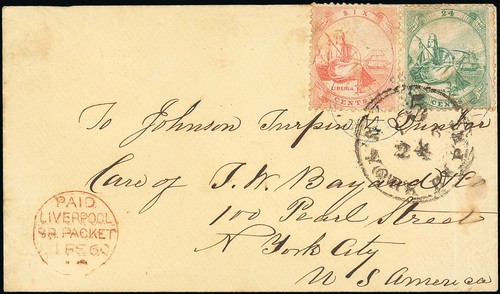 SIX
LIBERIA
CENTS
24
CENTS
To Johnson Turpin & Dunbar
24
Care of T. W. Bayand & Co
100 Pearl Street
N York City
U S America
PAID
LIVERPOOL
BR. PACKET
1 FE 60